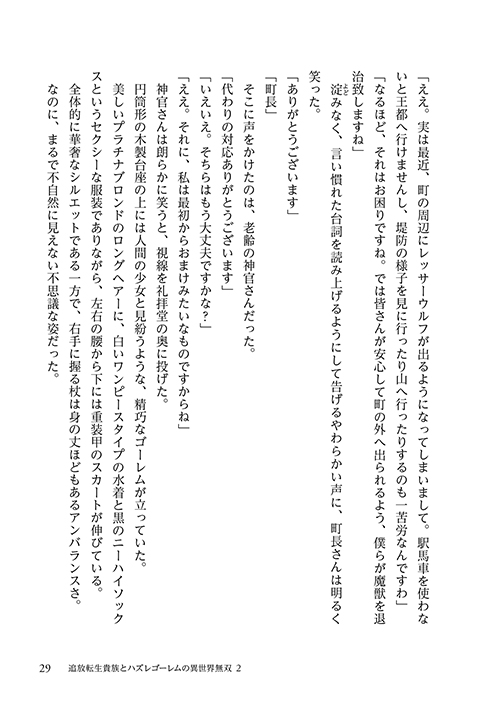 「ええ。実は最近、町の周辺にレッサーウルフが出るようになってしまいまして。駅馬車を使わな
いと王都へ行けませんし、堤防の様子を見に行ったり山へ行ったりするのも一苦労なんですわ」
「なるほど、それはお困りですね。では皆さんが安心して町の外へ出られるよう、僕らが魔獣を退
治致しますね」
淀みなく、言い慣れた台詞を読み上げるようにして告げるやわらかい声に、町長さんは明るく
笑った。
「ありがとうございます」
「町長」
そこに声をかけたのは、老齢の神官さんだった。
「代わりの対応ありがとうございます」
「いえいえ。そちらはもう大丈夫ですかな？」
「ええ。それに、私は最初からおまけみたいなものですからね」
神官さんは朗らかに笑うと、視線を礼拝堂の奥に投げた。
円筒形の木製台座の上には人間の少女と見紛うような、精巧なゴーレムが立っていた。
美しいプラチナブロンドのロングヘアーに、白いワンピースタイプの水着と黒のニーハイソック
スというセクシーな服装でありながら、左右の腰から下には重装甲のスカートが伸びている。
全体的に華奢なシルエットである一方で、右手に握る杖は身の丈ほどもあるアンバランスさ。
なのに、まるで不自然に見えない不思議な姿だった。
29 追放転生貴族とハズレゴーレムの異世界無双 2